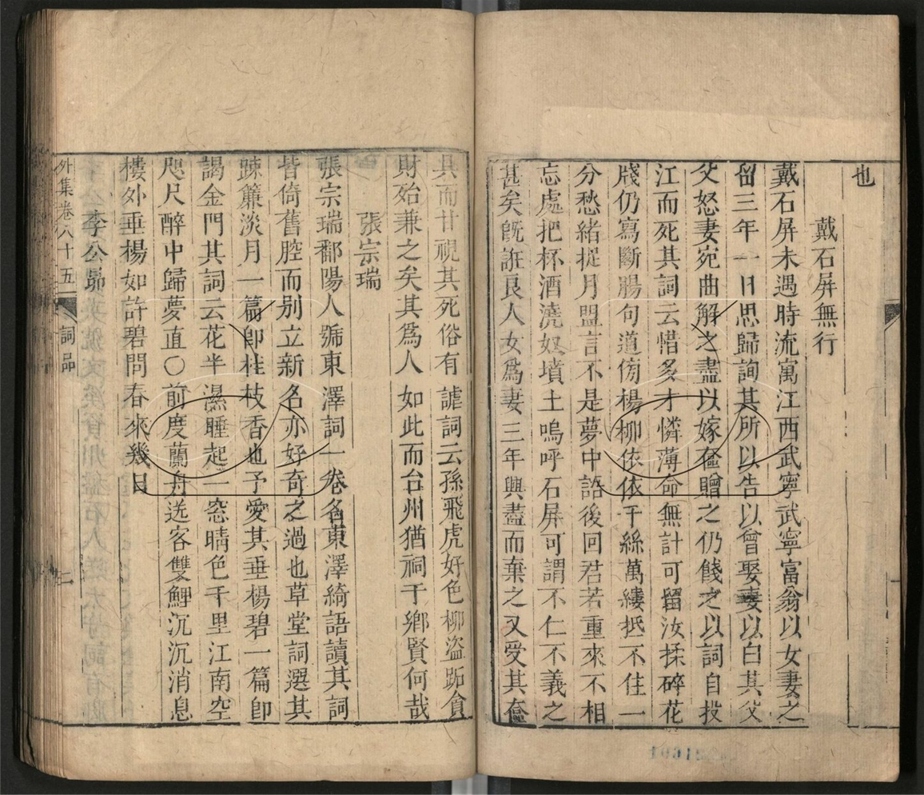 也
戴石屏無行
戴石屏未遇時流寓江西武寧武寧富翁以女妻之
留三年一日思歸詢其所以告以曾娶妻以白其父
父怒妻宛曲解之盡以嫁奩贈之仍餞之以詞自投
江而死其詞云惜多才憐薄命無計可留汝揉碎花
牋仍寫斷腸句道傍楊柳依依千絲萬縷抵不住一
分愁緒捉月盟言不是夢中語後回君若重來不相
忘處把杯酒澆奴墳土嗚呼石屏可謂不仁不義之
甚矣既誑良人女為妻三年興盡而棄之又受其奩
具而甘視其死俗有謔詞云孫飛虎好色柳盜跖貪
財殆兼之矣其為人如此而台州猶祠于鄉賢何哉
張宗瑞
張宗瑞鄱陽人號東澤詞一卷名東澤綺語讀其詞
皆倚舊腔而別立新名亦好奇之過也草堂詞選其
踈簾淡月一篇即桂枝香也予愛其垂楊碧一篇即
謁金門其詞云花半濕睡起一窓晴色千里江南空
咫尺醉中歸夢直○前度蘭舟送客雙鯉沉沉消息
樓外垂楊如許碧問春來幾日
李公昴
外集卷八十五 詞品 二